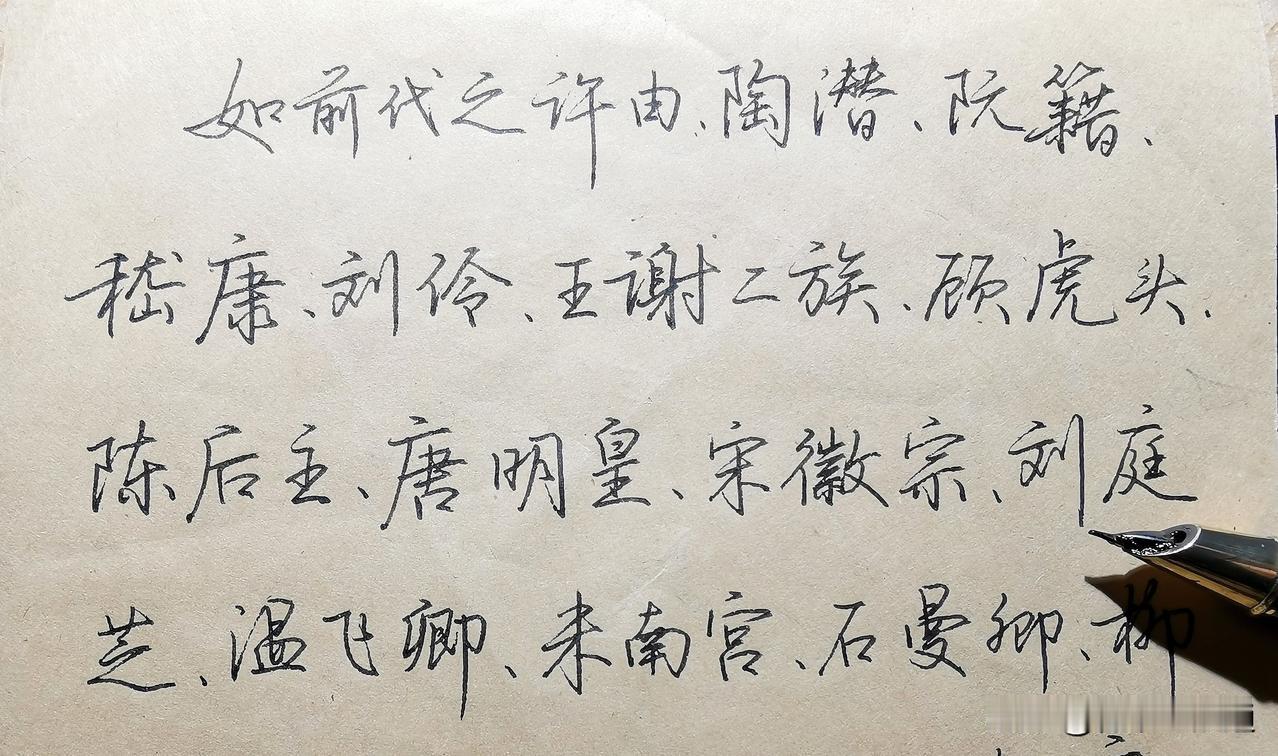 如前代之许由、陶潜、阮籍、
嵇康、刘伶、王谢二族、顾虎头、
陈后主、唐明皇、宋徽宗、刘庭
芝、温飞卿、米南宫、石曼卿、柳